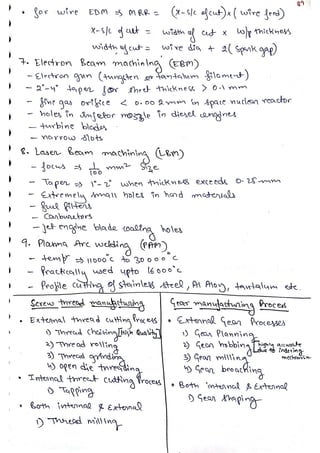 89
• for wire EDM ⇒ MRR = (x-s/c of cut) x (wire feed)
x-s/c of cut = width of cut x w/p thickness
width of cut = wire dia + 2(spark gap)
7. Electron Beam machining (EBM)
- Electron gun (tungsten or tantalum filament)
- 2°-4° taper for sheet thickness > 0.1 mm
- fine gas orifice < 0.002 mm in space nuclear reactor
- holes in injector nozzle in diesel engines
- turbine blades
- narrow slots
8. Laser Beam machining (LBM)
- focus ⇒ 1/100 mm² size
- Taper ⇒ 1°-2° when thickness exceeds 0.25 mm
- Extremely small holes in hard materials
- fuel filters
- Carburators
- jet engine blade cooling holes
9. Plasma Arc welding (PAM)
- temp ⇒ 11000°c to 30000°c
- Practically used upto 16000°c
- Profile cutting of stainless steel, Al Alloy, tantalum etc.
Screw thread manufacturing
• External thread cutting Process
1) Thread chasing [high Quality]
2) Thread rolling
3) Thread grinding
4) open die threading
• Internal thread cutting Process
1) Tapping
• Both internal & External
1) Thread milling
Gear manufacturing Process
• External Gear Processes
1) Gear Planning
2) Gear hobbing [highly accurate due to indexing mechanism
3) Gear milling
4) Gear broaching
• Both internal & External
1) Gear Shaping